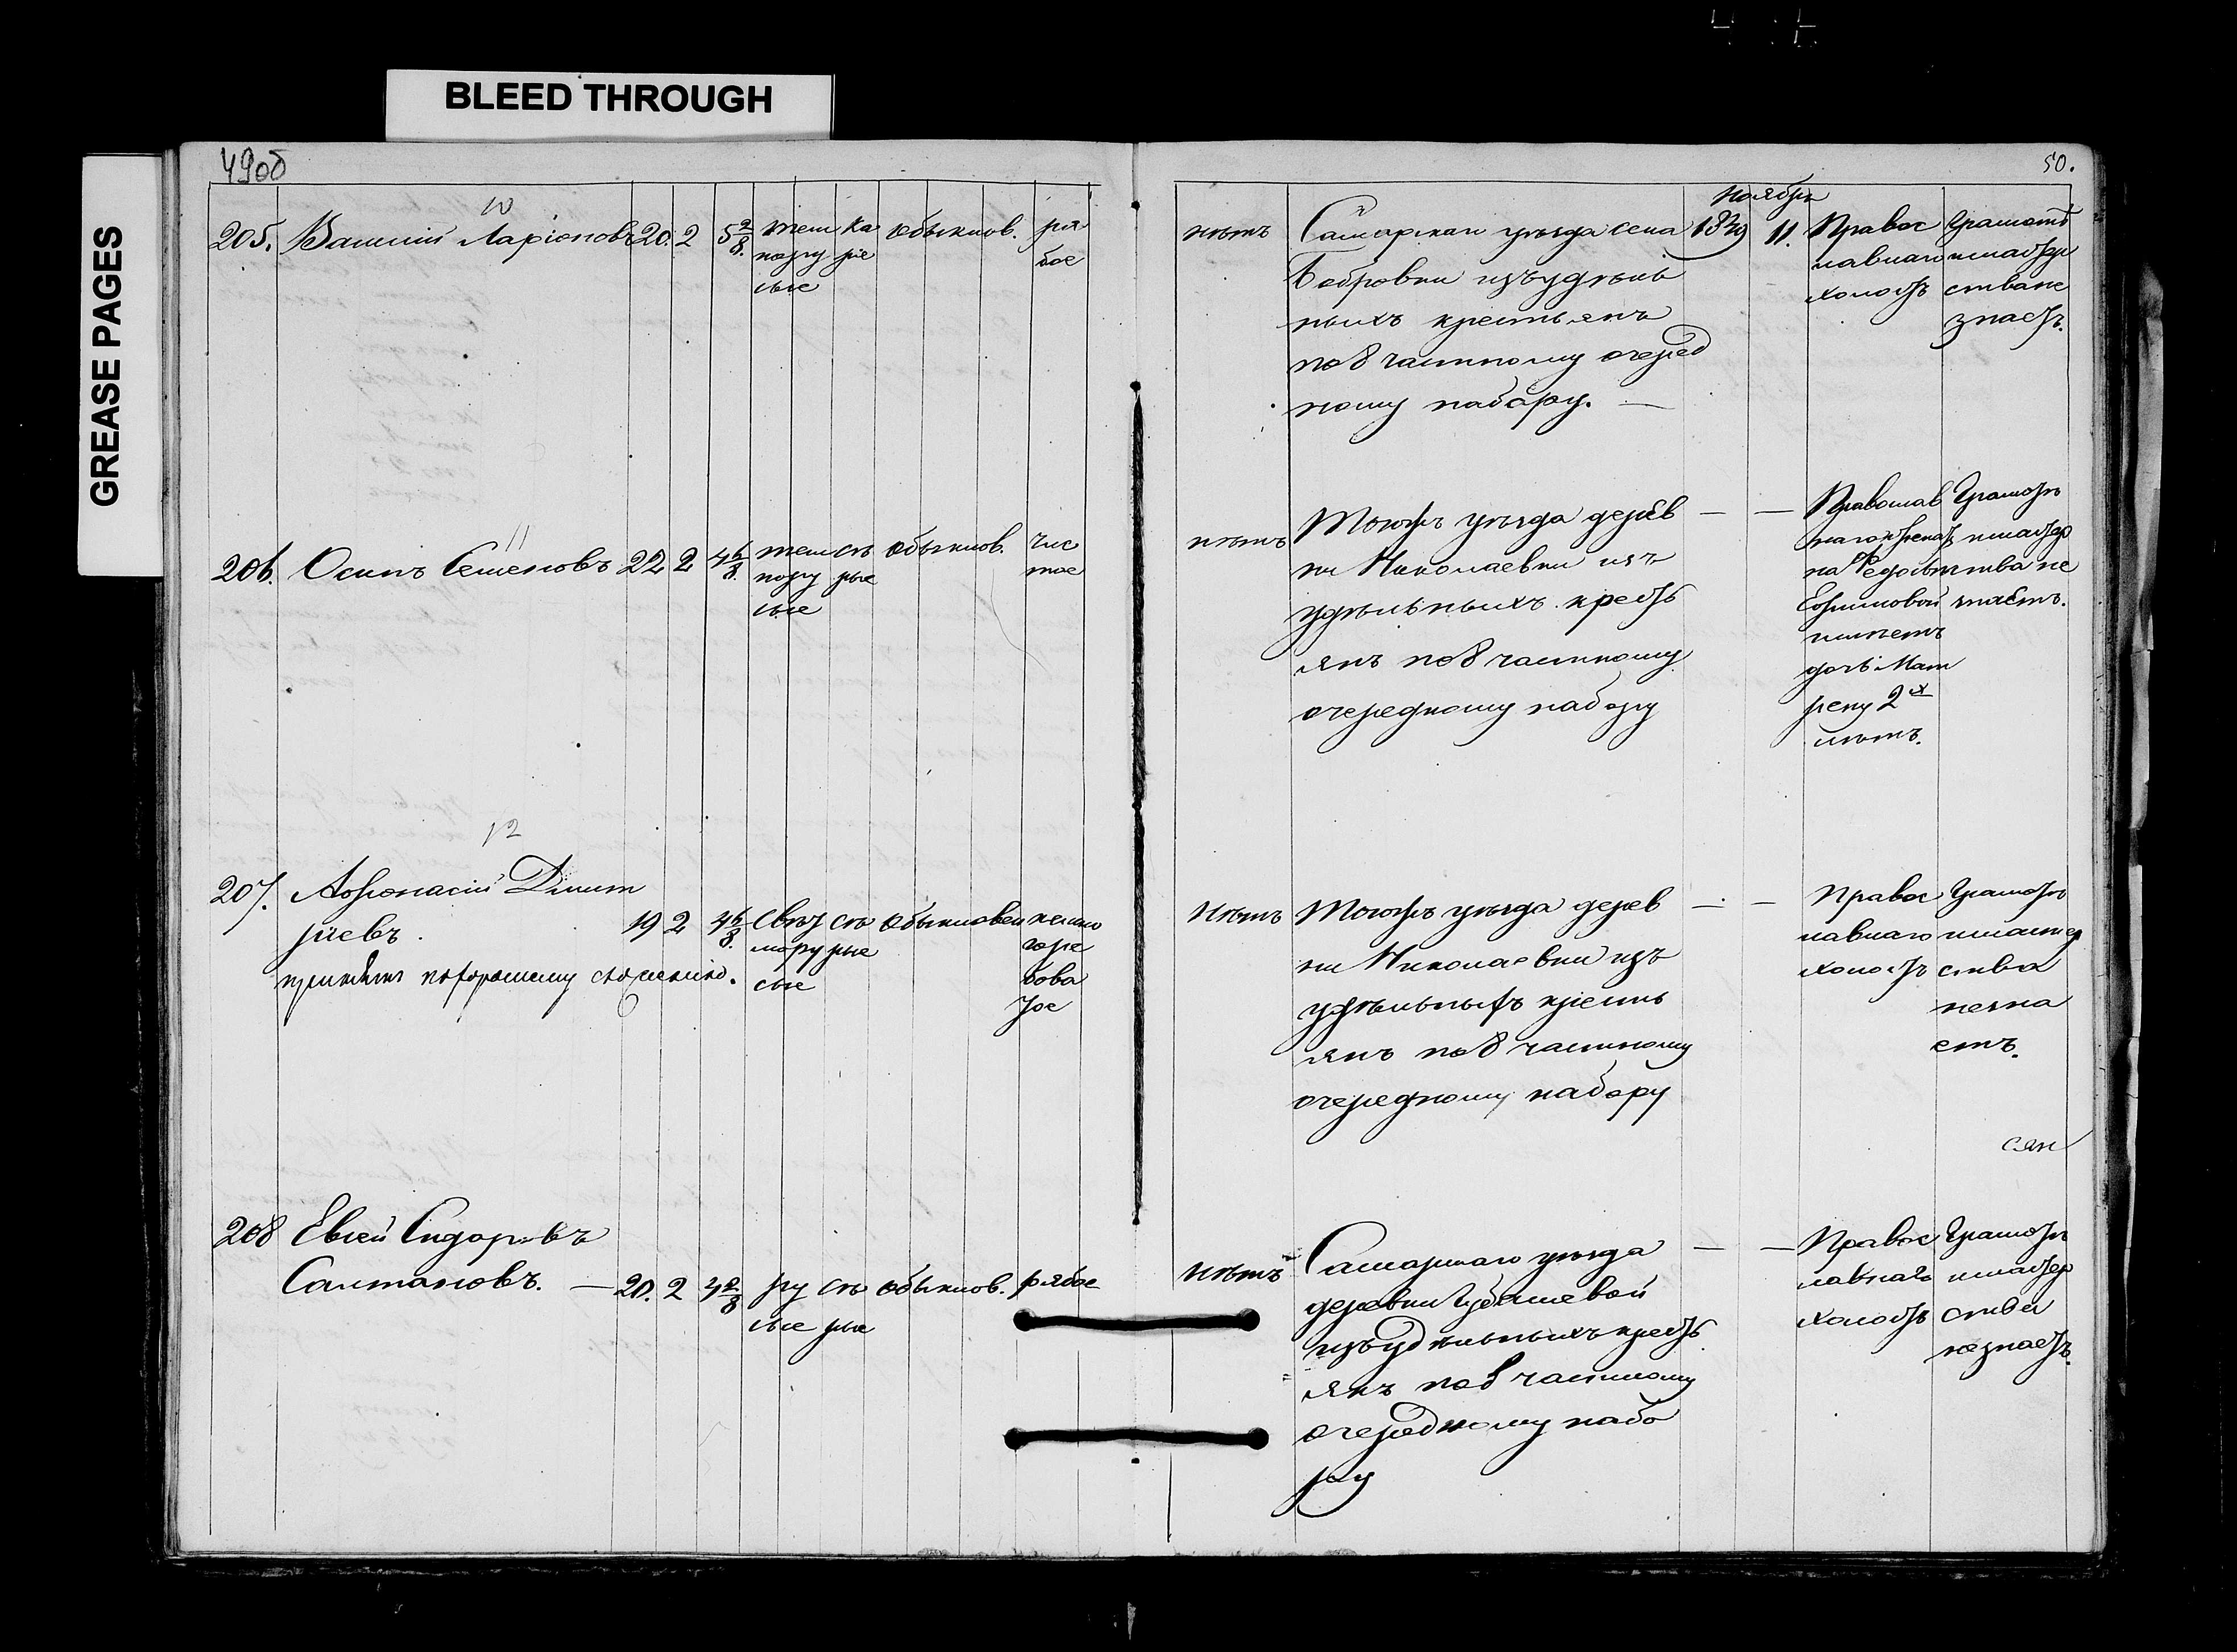 BLEED THROUGH
GREASE PAGES
49об
50.
10
205. Василий Ларіоновъ 20. 2 5 2/8. темн ка обыкнов. ря
нору ріе бое
сые
нѣтъ
Самарскаго уѣзда села
Бобровки изъ удѣль
ныхъ крестьянъ
по 8 частному очеред
ному набору. —
Ноября
1839 11.
Правос
лавнаго
холостъ
Грамотѣ
и мастер
ства не
знаетъ.
11
206. Осипъ Семеновъ 22 2 4 6/8. темн сѣ обыкнов. чис
нору рые тое
сые
нѣтъ
Тогожъ уѣзда дерев
ни Николаевки изъ
удѣльныхъ кресть
янъ по 8 частному
очередному набору
— —
Православ
наго женатъ
на Федосьи
Ефимовой
имѣетъ
дочь Мат
рену 2х
лѣтъ.
Грамотѣ
и мастер
ства не
знаетъ.
12
207. Афонасій Дмит
ріевъ. 19 2 4 6/8. свѣт сѣ обыкновен немно
лору рые го ря
сые бова
тое
принятъ по хорошему сложенію.
нѣтъ
Тогожъ уѣзда дерев
ни Николаевки изъ
удѣльныхъ кресть
янъ по 8 частному
очередному набору
— —
Правос
лавнаго
холостъ
Грамотѣ
и мастер
ства
незна
етъ.
208 Евсей Сидоровъ
Салтановъ. — 20. 2 4 2/8 ру сѣ обыкнов. рябое
сые рые
нѣтъ
Самарскаго уѣзда
деревни Губашевой
изъ удѣльныхъ кресть
янъ по 8 частному
очередному набо
ру
— —
Правос
лавнаго
холостъ
Грамотѣ
и мастер
ства
не знаетъ.